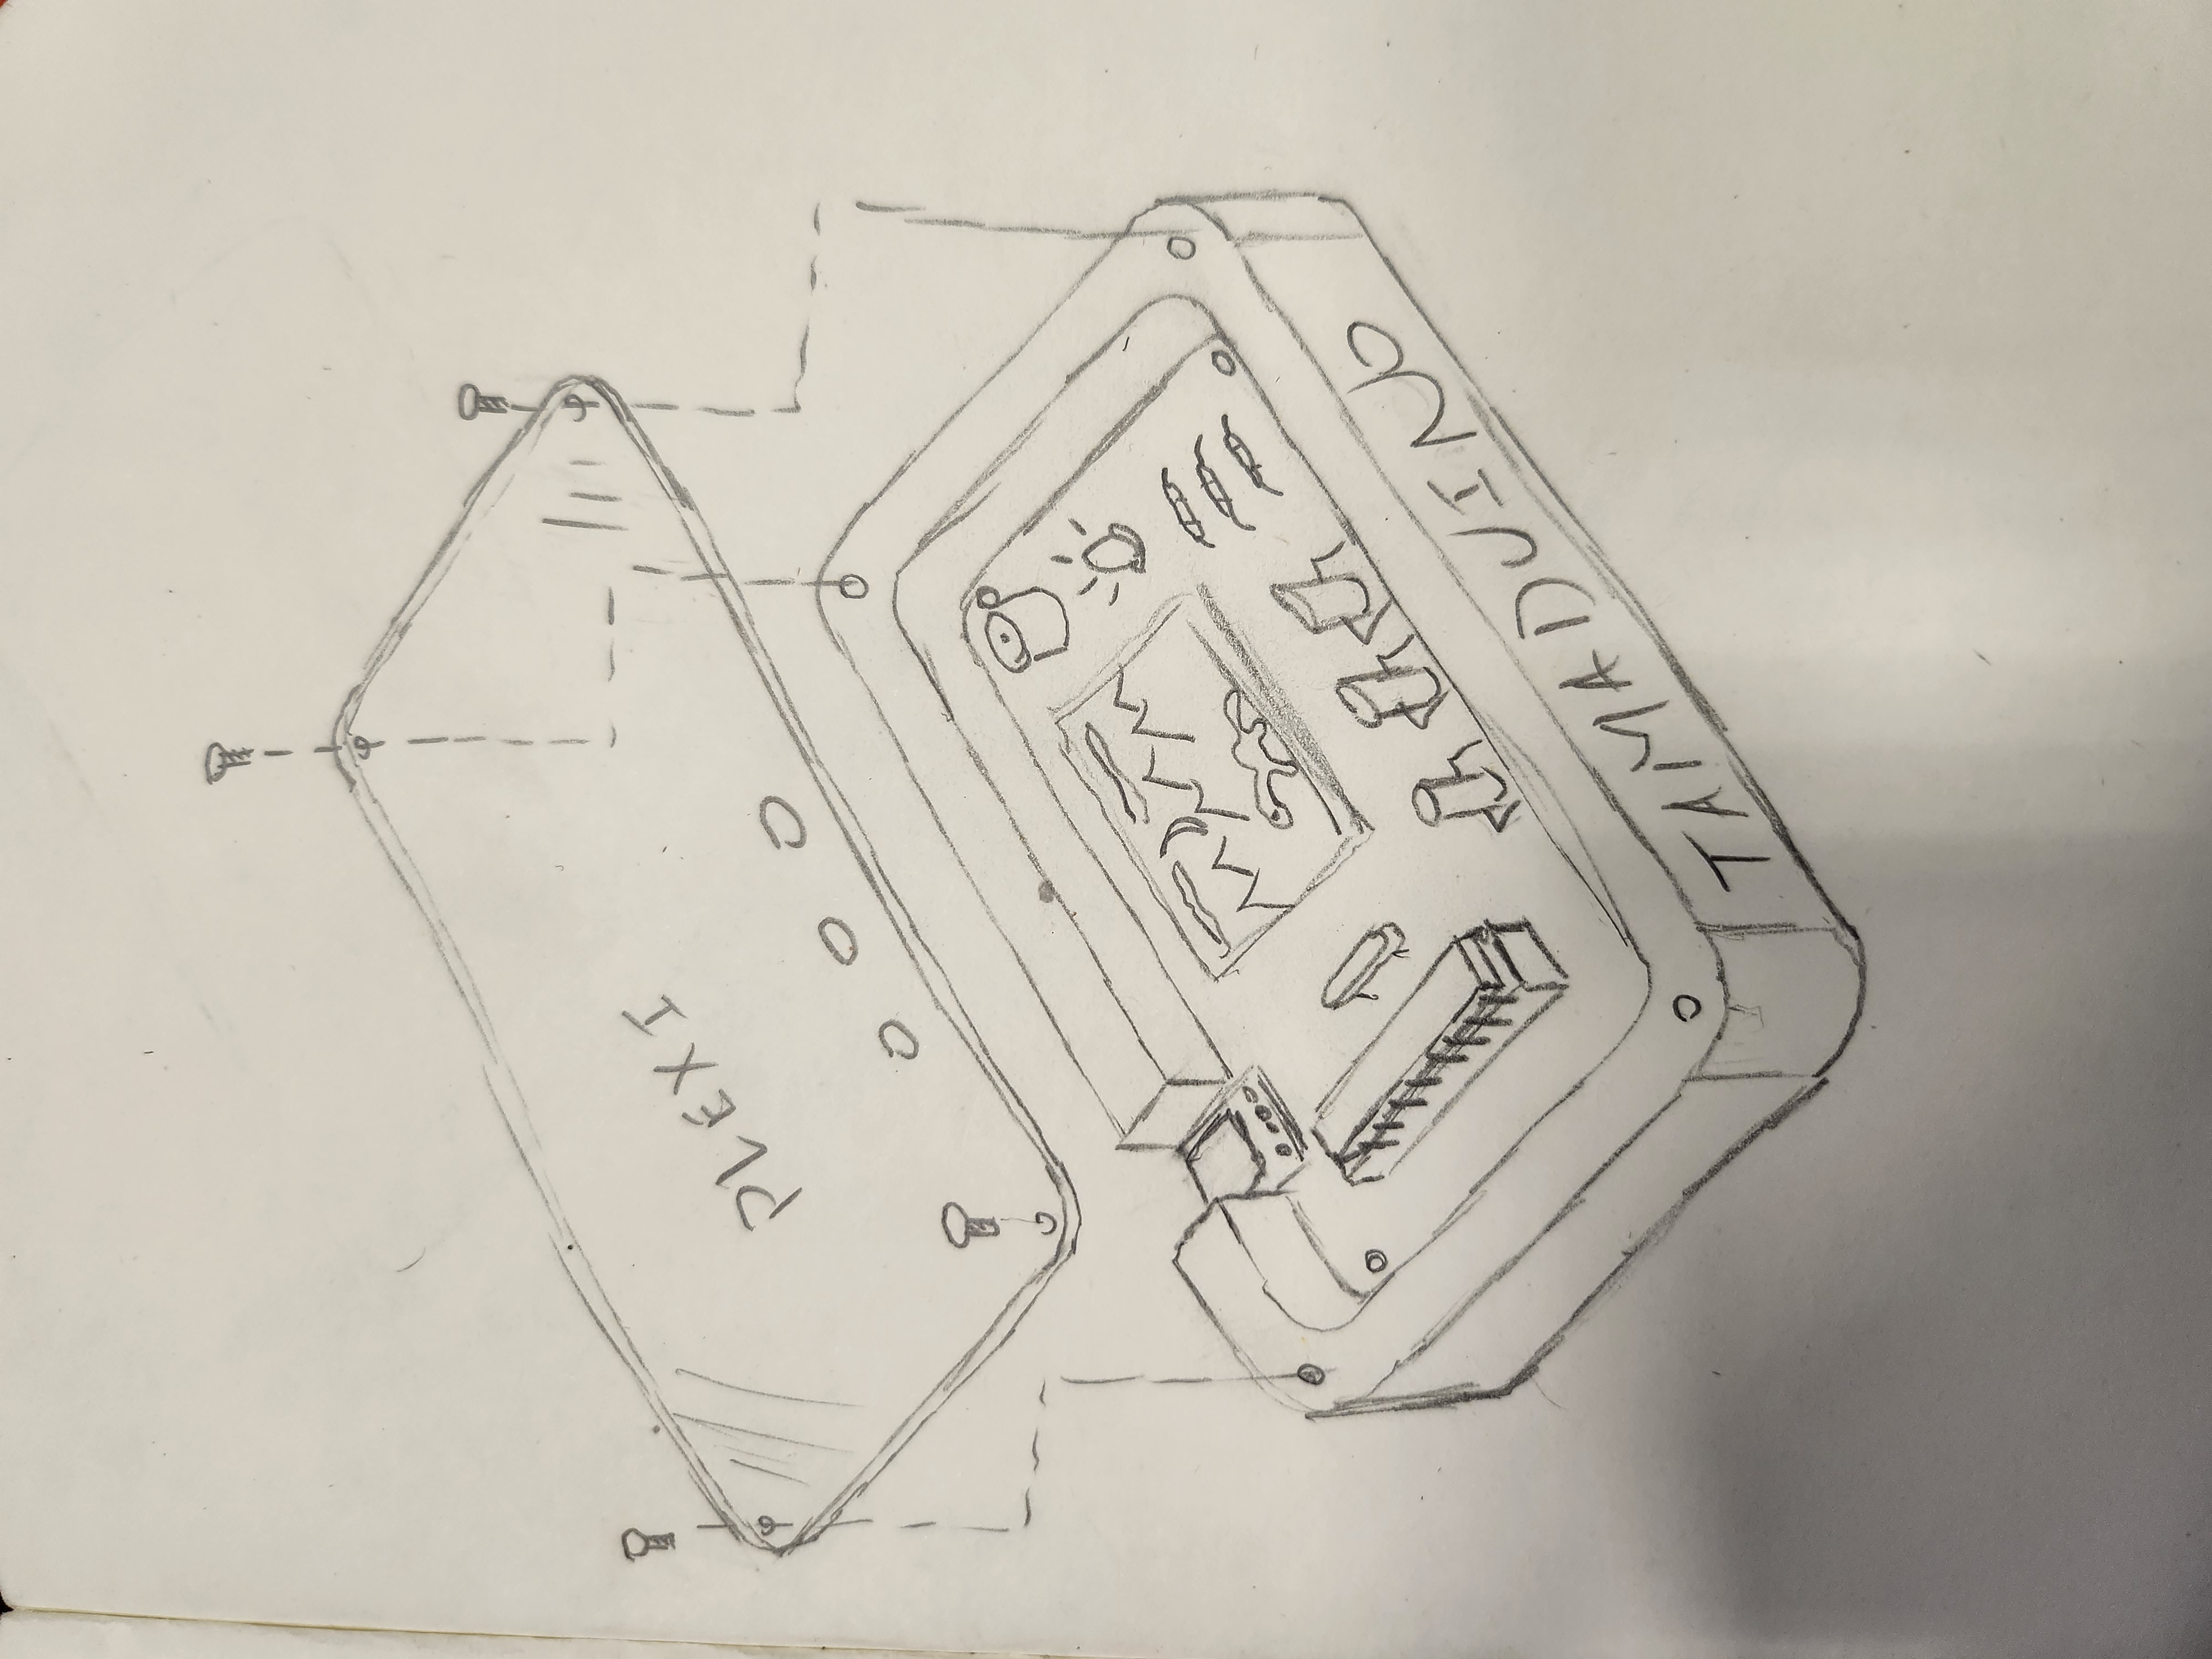 PLEXI
TAMADUINO